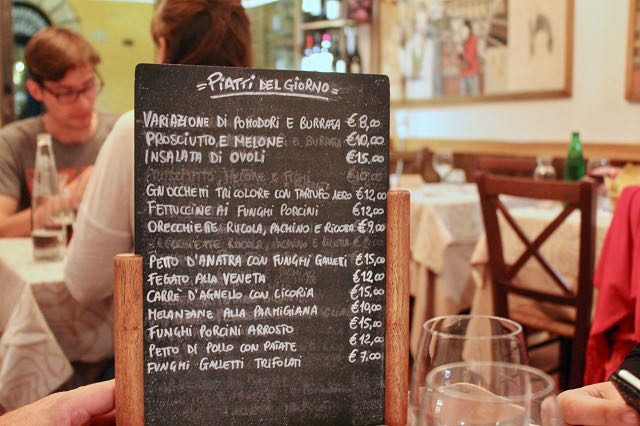 =PIATTI DEL GIORNO=
VARIAZIONE DI POMODORI E BURRATA €8,00
PROSCIUTTO E MELONE €10,00
INSALATA DI OVOLI €15,00
GNOCCHETTI TRICOLORE CON TARTUFO NERO €12,00
FETTUCCINE AI FUNGHI PORCINI €12,00
ORECCHIETTE RUCOLA, PACHINO E RICOTTA €9,00
PETTO D'ANATRA CON FUNGHI GALLETTI €15,00
FEGATO ALLA VENETA €12,00
CARRE' D'AGNELLO CON CICORIA €15,00
MELANZANE ALLA PARMIGIANA €10,00
FUNGHI PORCINI ARROSTO €15,00
PETTO DI POLLO CON PATATE €12,00
FUNGHI GALLETTI TRIFOLATI €7,00